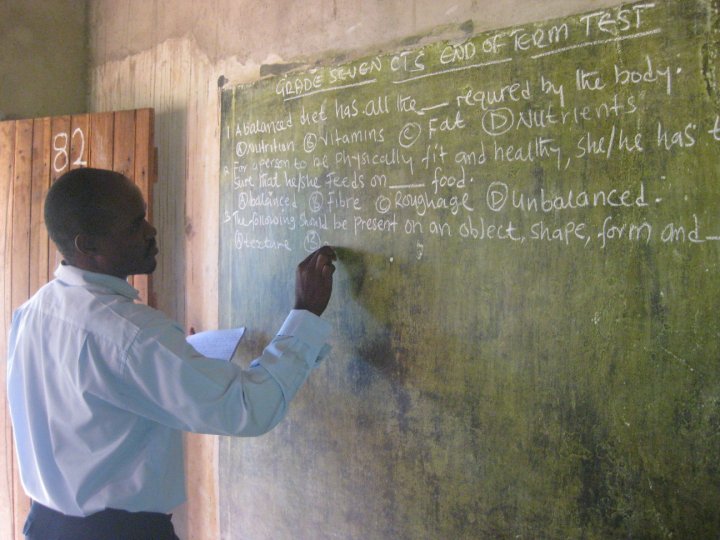 82
GRADE SEVEN CTS END OF TERM TEST
1. A balanced diet has all the __ required by the body.
Ⓐ nutrition Ⓑ vitamins Ⓒ Fat Ⓓ Nutrients
2. For a person to be physically fit and healthy, she/he has t
sure that he/she feeds on ____ food.
Ⓐ balanced Ⓑ Fibre Ⓒ Roughage Ⓓ Unbalanced.
3. The following should be present on an object, shape, form and __
Ⓐ texture Ⓑ